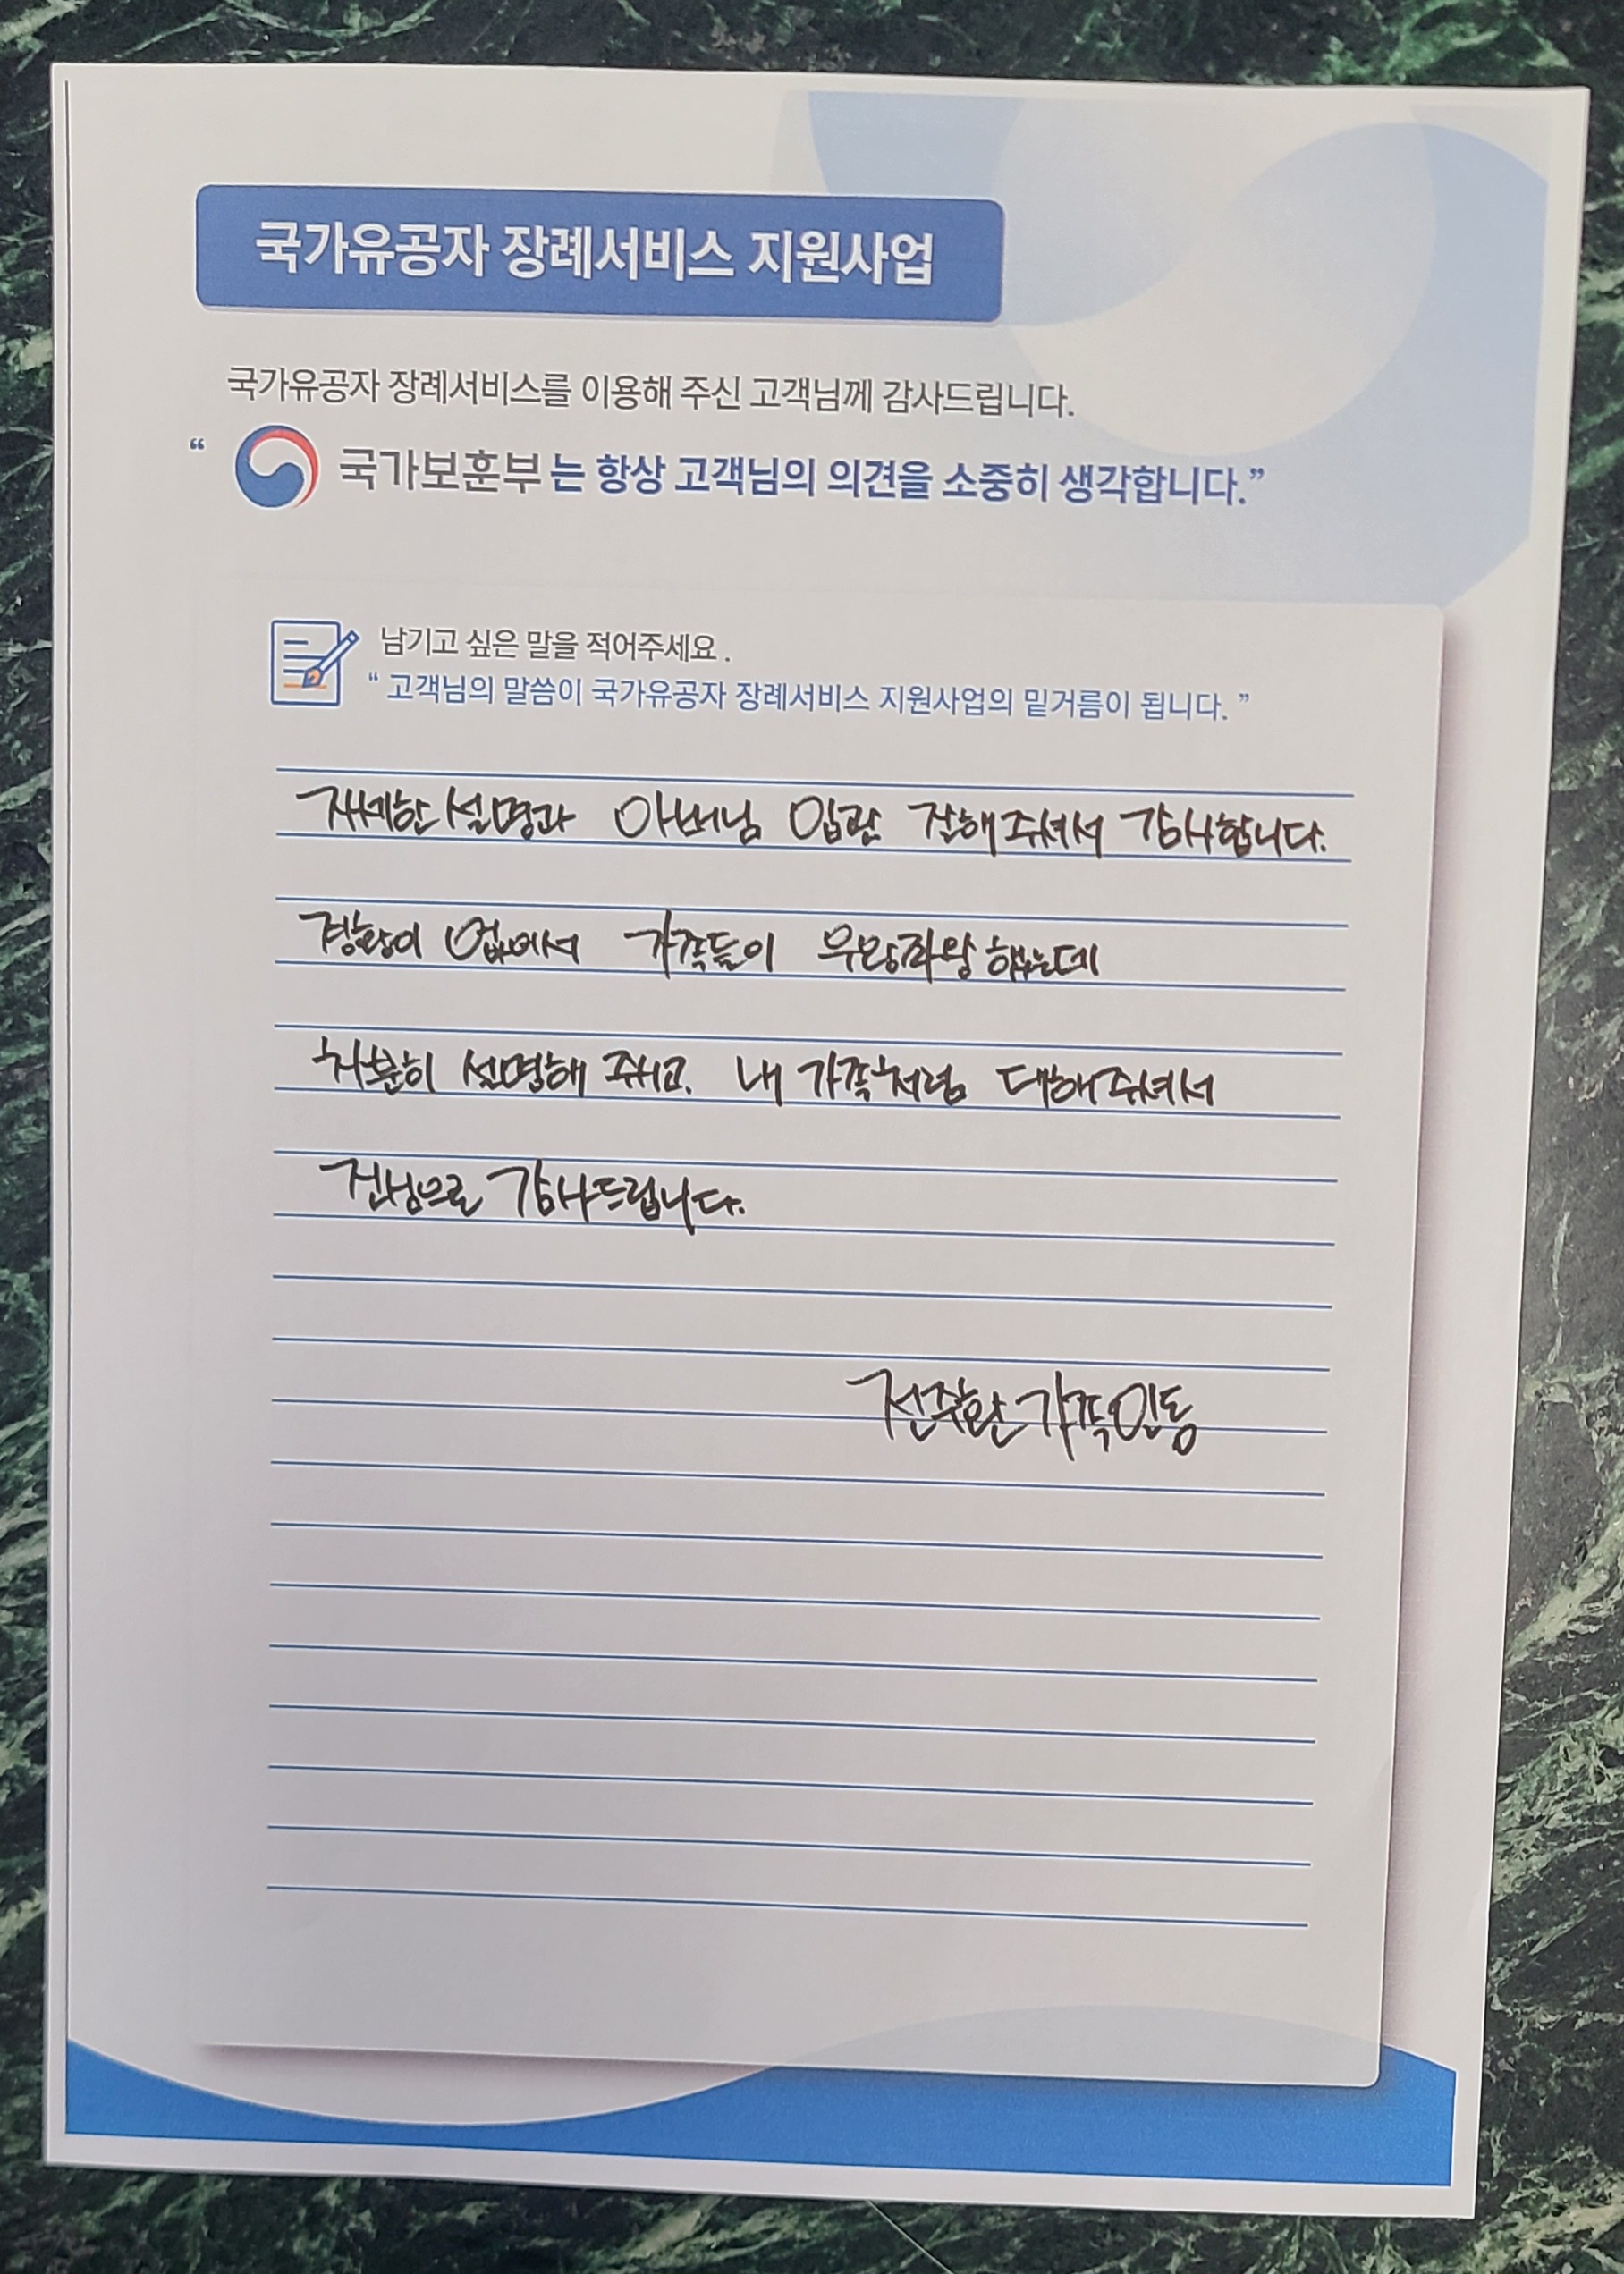 국가유공자 장례서비스 지원사업
국가유공자 장례서비스를 이용해 주신 고객님께 감사드립니다.
“ 국가보훈부 는 항상 고객님의 의견을 소중히 생각합니다.”
남기고 싶은 말을 적어주세요 .
“ 고객님의 말씀이 국가유공자 장례서비스 지원사업의 밑거름이 됩니다. ”
자세한 설명과 아버님 입관 잘해주셔서 감사합니다.
경황이 없어서 가족들이 우왕좌왕 했는데
차분히 설명해 주시고. 내 가족처럼 대해주셔서
진심으로 감사드립니다.
가족일동